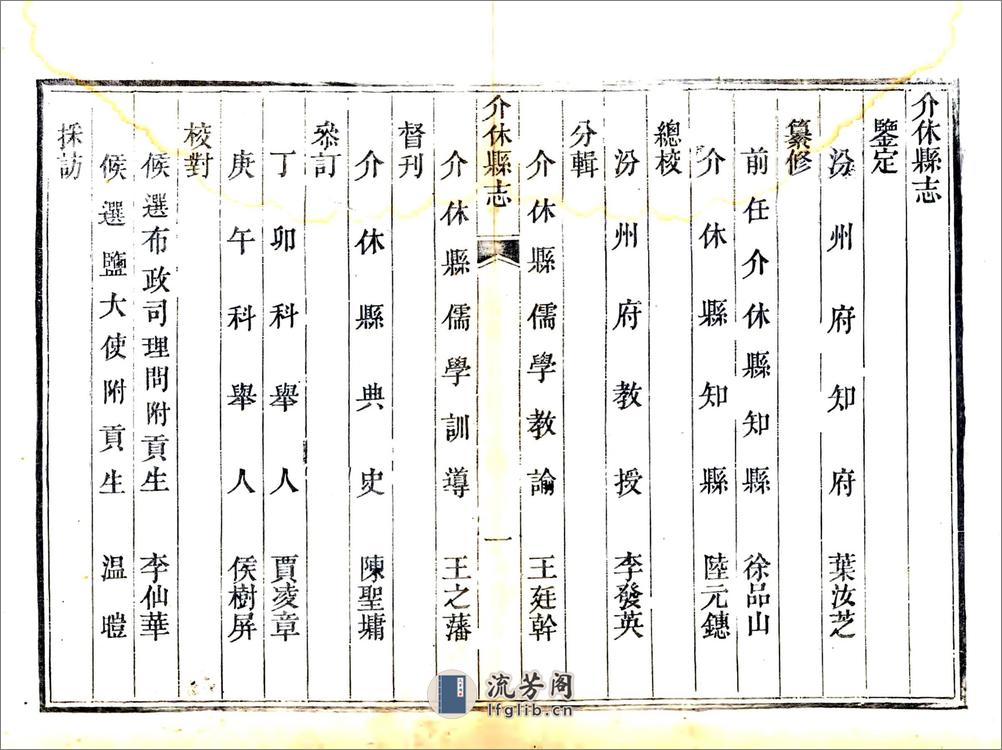 介休縣志
鑒定
汾州府知府　葉汝芝
纂修
前任介休縣知縣　徐品山
介休縣知縣　陸元鏸
總校
汾州府教授　李發英
分輯
介休縣儒學教諭　王廷幹
介休縣志
一
介休縣儒學訓導　王之藩
督刊
介休縣典史　陳聖墉
叅訂
丁卯科舉人　賈凌章
庚午科舉人　侯樹屏
校對
候選布政司理問附貢生　李仙華
候選鹽大使附貢生　温曀
採訪
流芳阁
lfglib.cn